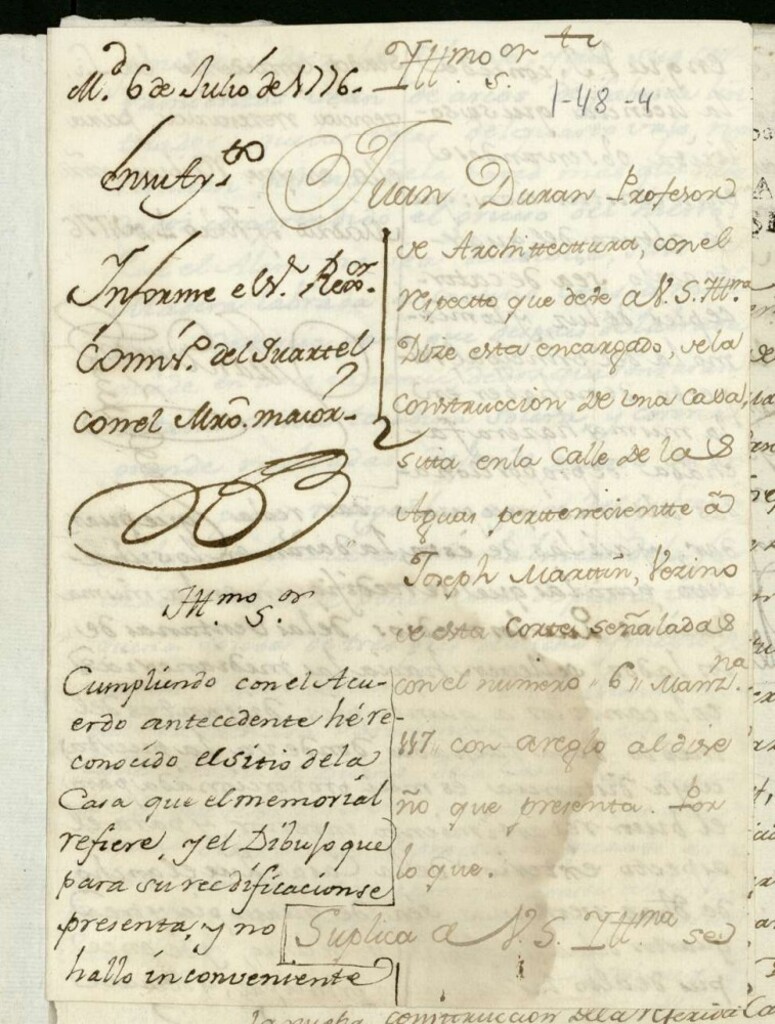 M.d 6 de Julio de 1776.
en su Ay.to
Informe el S.r Rexo.or
Comis.o del Quartel
con el Mro. maior
Ill.mo S.or
1-48-4
Juan Duran Profesor
de Architectura, con el
respecto que deve a V. S. Ill.ma
Dize esta encargado, de la
construccion de una Casa,
sita en la Calle de las
Aguas pertteneciente â
Joseph Martin, Vezino
de esta Corte, señalada
con el numero 6 Manz.na
117 con areglo al dise
ño que presenta. Por
lo que.
Suplica a V. S. Ill.ma se
Ill.mo S.or
Cumpliendo con el Acu-
erdo antecedente hé re-
conocido el sitio de la
Casa que el memorial
refiere, y el Dibujo que
para su reedificacion se
presenta, y no
hallo inconveniente
la nueba construccion de la referida Ca